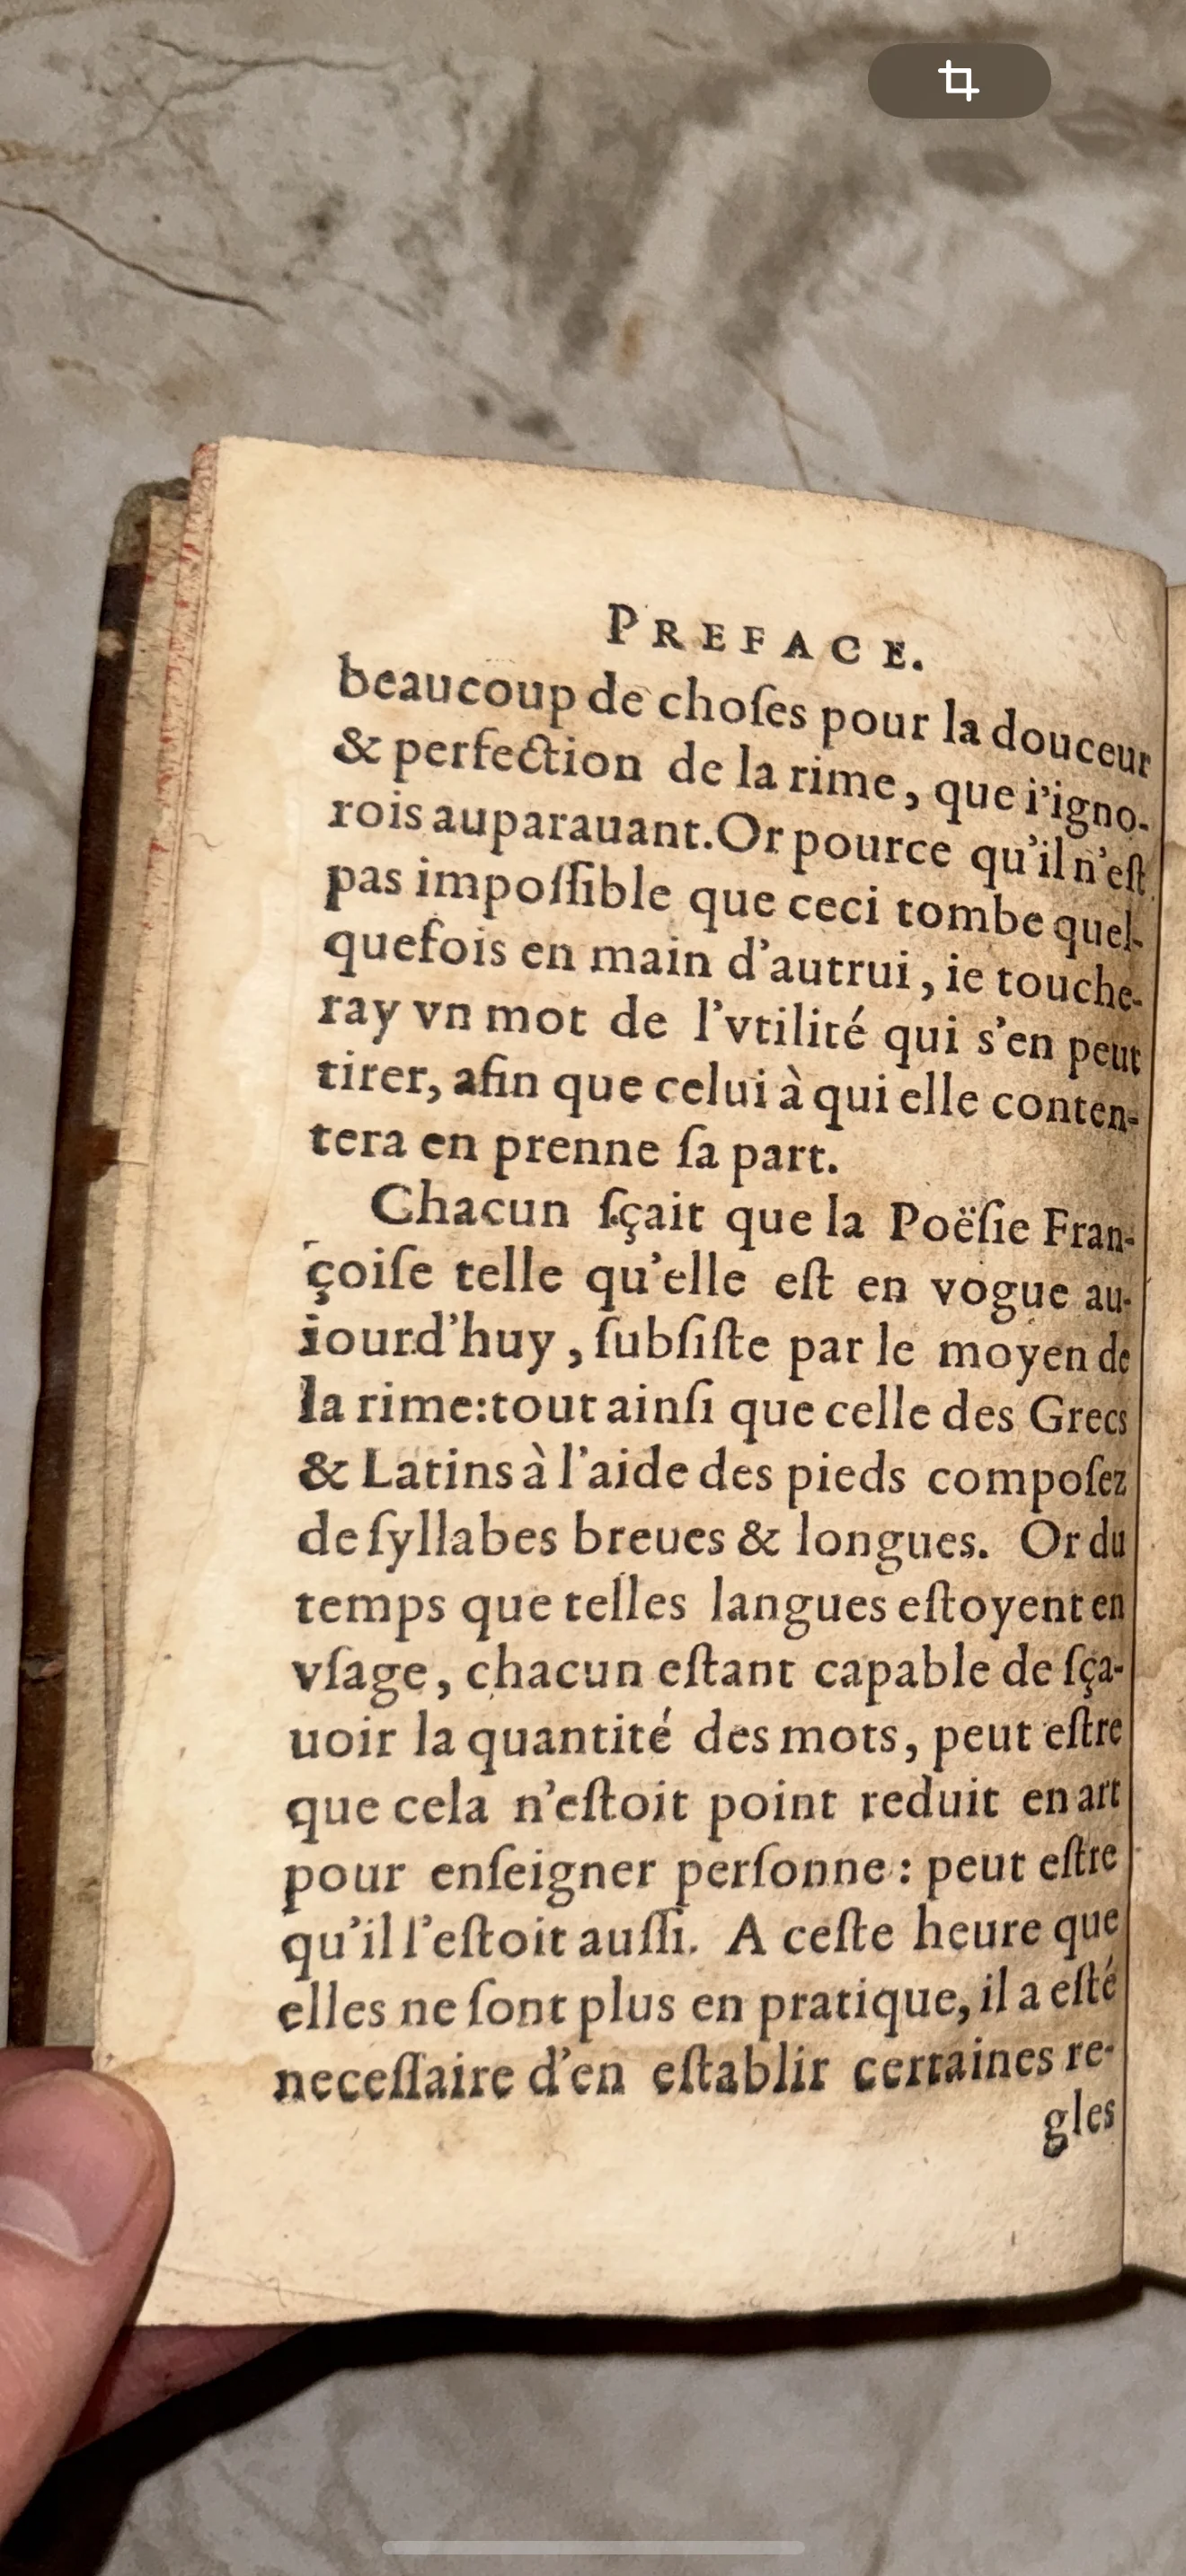 PREFACE.
beaucoup de choſes pour la douceur
& perfection de la rime, que i'igno-
rois auparauant. Or pource qu'il n'eſt
pas impoſſible que ceci tombe quel-
quefois en main d'autrui, ie touche-
ray vn mot de l'vtilité qui s'en peut
tirer, afin que celui à qui elle conten-
tera en prenne ſa part.
Chacun ſçait que la Poëſie Fran-
çoiſe telle qu'elle eſt en vogue au-
iourd'huy, ſubſiſte par le moyen de
la rime: tout ainſi que celle des Grecs
& Latins à l'aide des pieds compoſez
de ſyllabes breues & longues. Or du
temps que telles langues eſtoyent en
vſage, chacun eſtant capable de ſça-
uoir la quantité des mots, peut eſtre
que cela n'eſtoit point reduit en art
pour enſeigner perſonne: peut eſtre
qu'il l'eſtoit auſſi. A ceſte heure que
elles ne ſont plus en pratique, il a eſté
neceſſaire d'en eſtablir certaines re-
gles